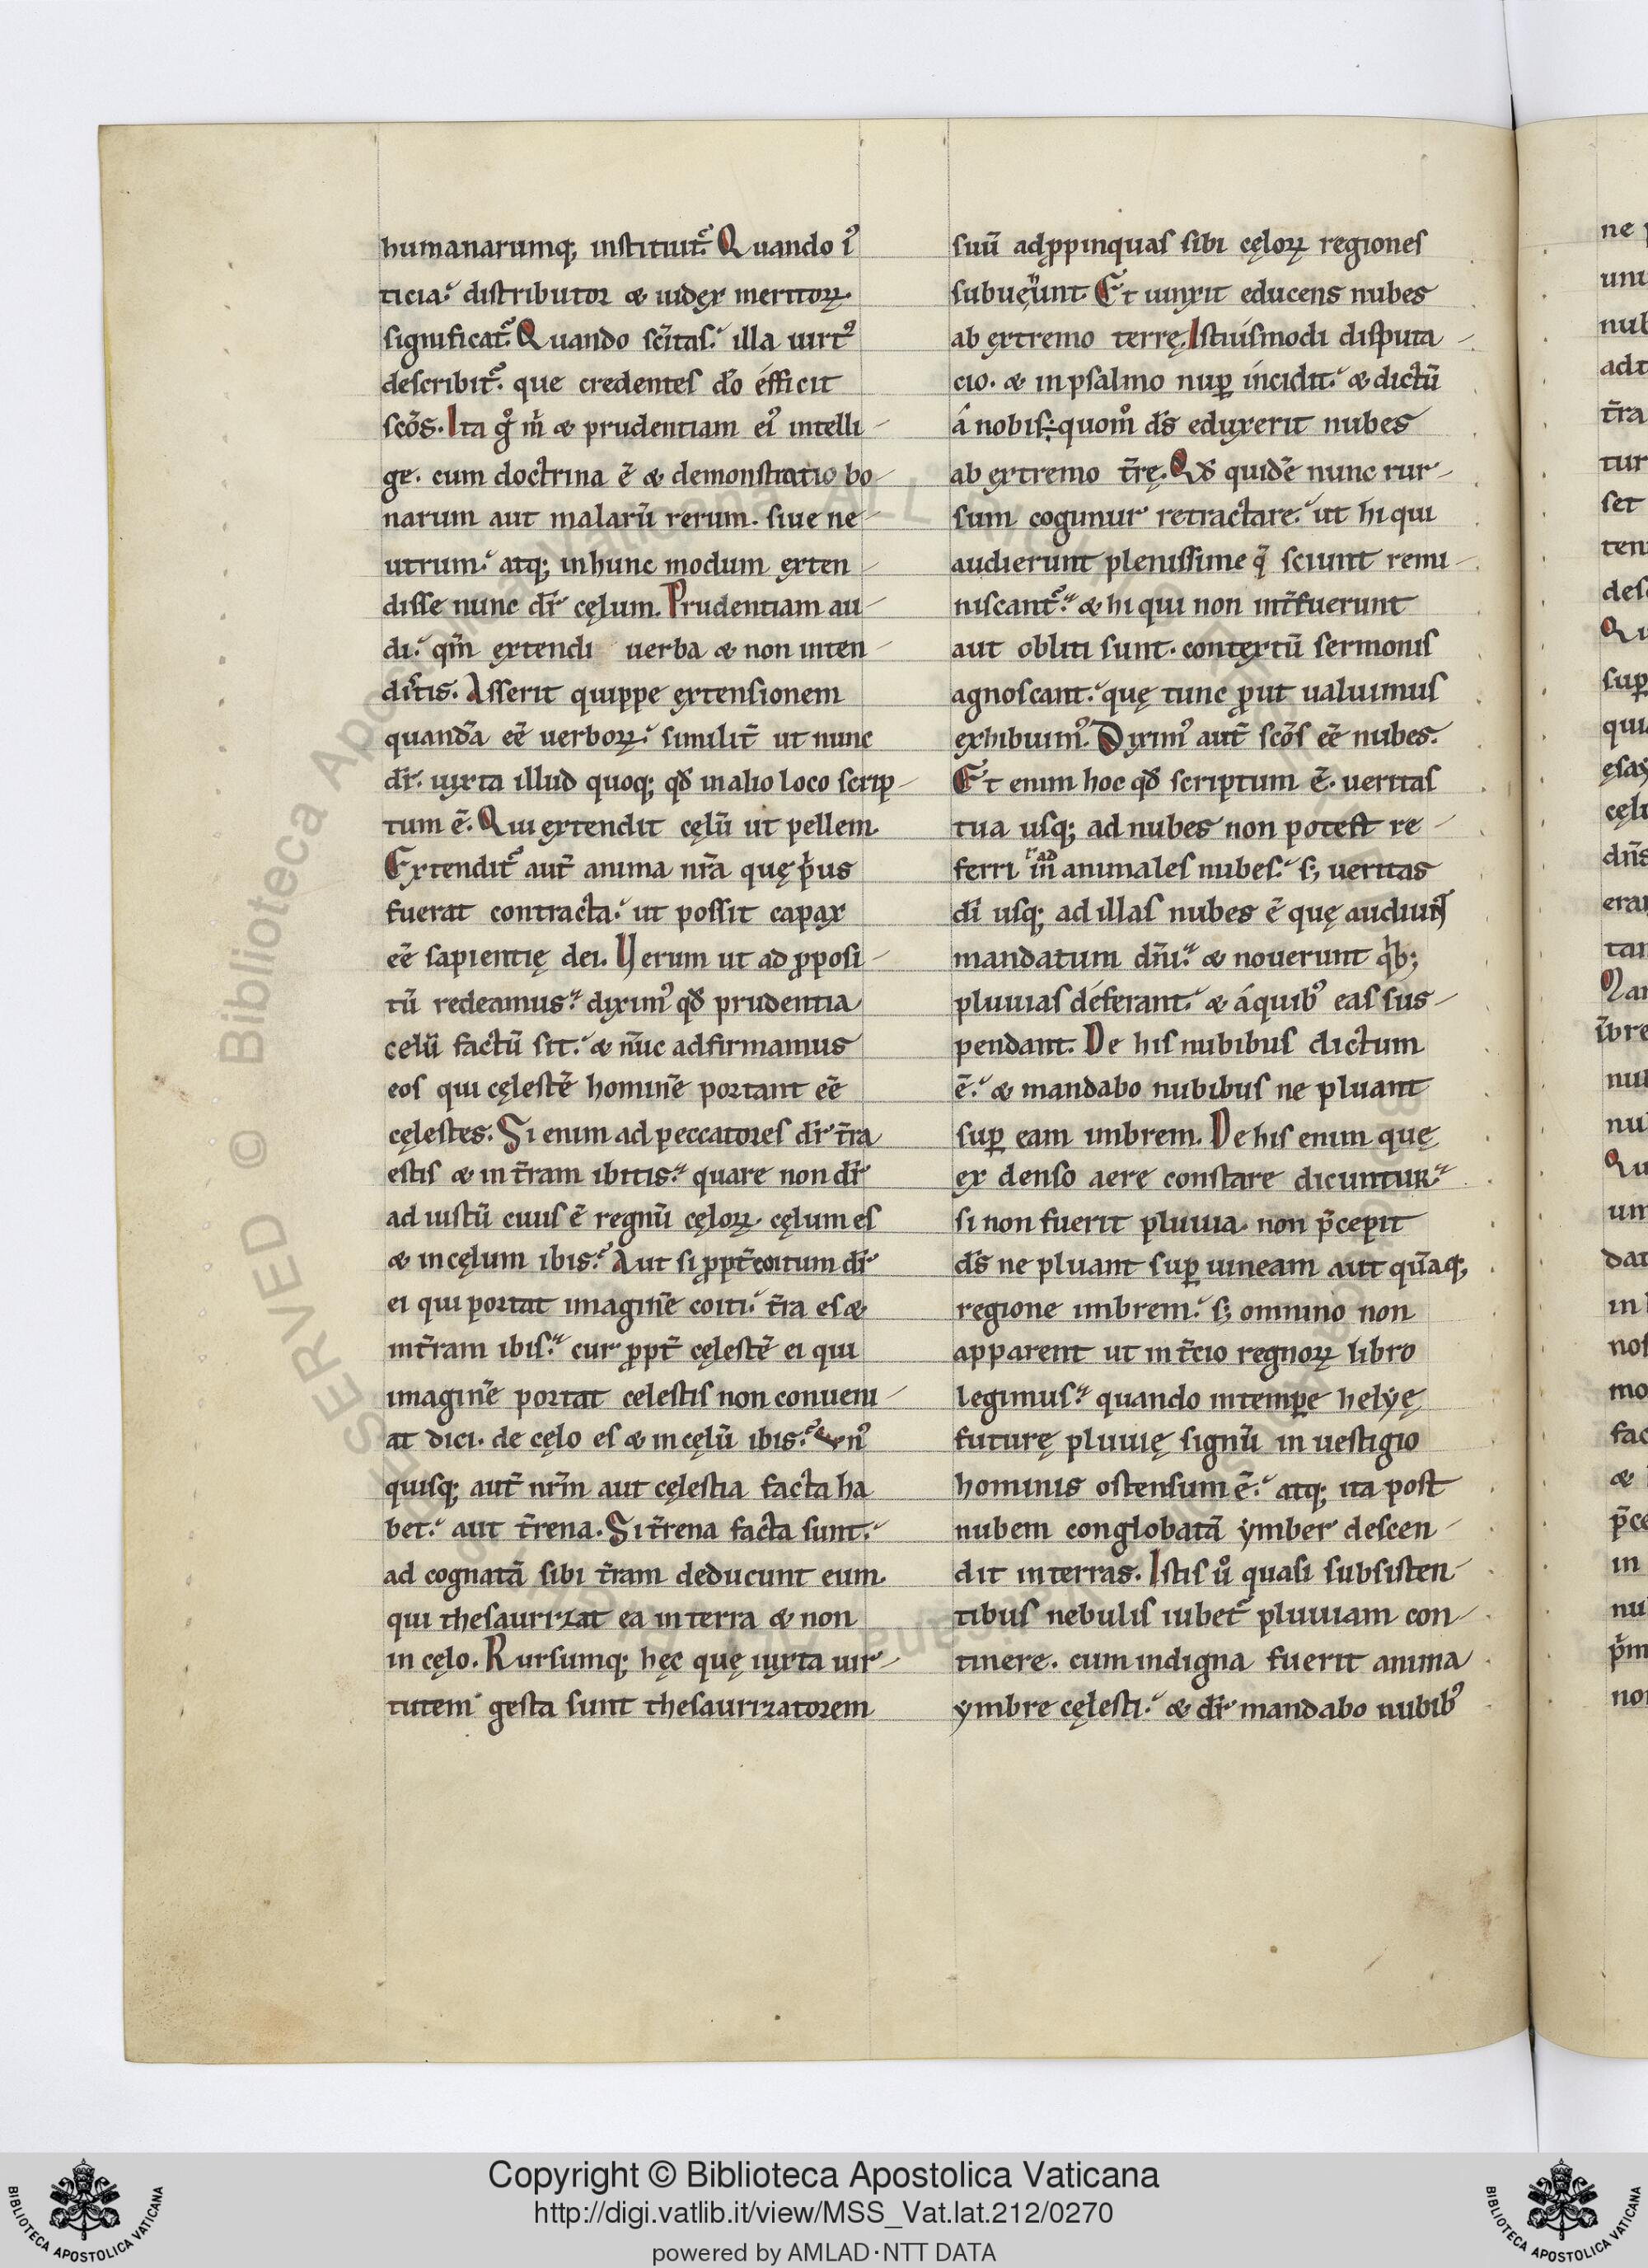 humanarumq; instituit᷑. Quando i᷒
ticia. distributor & iudex meritoꝝ.
significat᷑. Quando sc̄itas. illa uirt᷒
describit᷑. que credentes dō efficit
scōs. Ita gͦ m̄ & prudentiam ei᷒ intelli-
ge. cum doctrina ē & demonstratio bo-
narum aut malarū rerum. siue ne-
utrum. atq; inhunc modum exten-
disse nunc dr̄ cęlum. Prudentiam au-
di. qm̄ extendi uerba & non inten-
ditis. Asserit quippe extensionem
quandā eē uerboꝝ. similit̄ ut nunc
dr̄. iuxta illud quoq; qđ inalio loco scrip-
tum ē. Qui extendit cęlū ut pellem.
Extendit᷑ aut̄ anima nr̄a quę pͥus
fuerat contracta. ut possit capax
eē sapientię dei. Verum ut ad ꝓposi-
tū redeamus. dixim᷒ qđ prudentia
celū factū sit. & nūc adfirmamus
eos qui cęlestē hominē portant eē
cęlestes. Si enim ad peccatores dr̄ t̄ra
estis & in t̄ram ibitis. quare non dr̄
ad iustū cuius ē regnū cęloꝝ. cęlum es
& incęlum ibis. Aut si ꝓpt̄ coitum dr̄
ei qui portat imaginē coiti. t̄ra es &
int̄ram ibis. cur ꝓpt̄ cęlestē ei qui
imaginē portat celestis non conueni-
at dici. de cęlo es & incęlū ibis. n᷒
quisq; aut̄ nr̄m aut cęlestia facta ha
bet. aut t̄rena. Si t̄rena facta sunt.
ad cognatā sibi t̄ram deducunt eum.
qui thesaurizat ea in terra & non
in cęlo. Rursumq; hęc quę iuxta uir-
tutem gesta sunt thesaurizatorem
suū adꝓpinquas sibi cęloꝝ regiones
subueħunt. Et uinxit educens nubes
ab extremo terrę. Istiusmodi disputa-
cio. & inpsalmo nuꝑ incidit. & dictū
á nobis quomͦ dn̄s eduxerit nubes
ab extremo t̄rę. Qđ quidē nunc rur-
sum cogimur retractare. ut hi qui
audierunt plenissime q̄ sciunt remi-
niscant᷑. & hi qui non int̄fuerunt
aut obliti sunt. contextū sermonis
agnoscant. quę tunc ꝓut ualuimus
exhibuim᷒. Dixim᷒ aut̄ scōs eē nubes.
Et enim hoc qđ scriptum ē. ueritas
tua usq; ad nubes non potest re-
ferri ad in animales nubes. s; ueritas
dī usq; ad illas nubes ē quę audiunt
mandatum dn̄i. & nouerunt qͥb;
pluuias déferant. & áquib᷒ eas sus-
pendant. De his nubibus dictum
ē. & mandabo nubibus ne pluant
suꝑ eam imbrem. De his enim quę
ex denso aere constare dicuntur.
si non fuerit pluuia. non p̄cepit
dn̄s ne pluant suꝑ uineam aut qūaq;
regione imbrem. s; omnino non
apparent ut in t̄cio regnoꝝ libro
legimus. quando intemꝑe helyę
futurę pluuię signū in uestigio
hominis ostensum ē. atq; ita post
nubem conglobatā ymber descen-
dit interras. Istis uͦ quasi subsisten-
tibus nebulis iubet᷑ pluuiam con-
tinere. cum indigna fuerit anima
ymbre cęlesti. & dr̄ mandabo nubib᷒
Copyright © Biblioteca Apostolica Vaticana
http://digi.vatlib.it/view/MSS_Vat.lat.212/0270
powered by AMLAD·NTT DATA
BIBLIOTECA APOSTOLICA VATICANA
BIBLIOTECA APOSTOLICA VATICANA